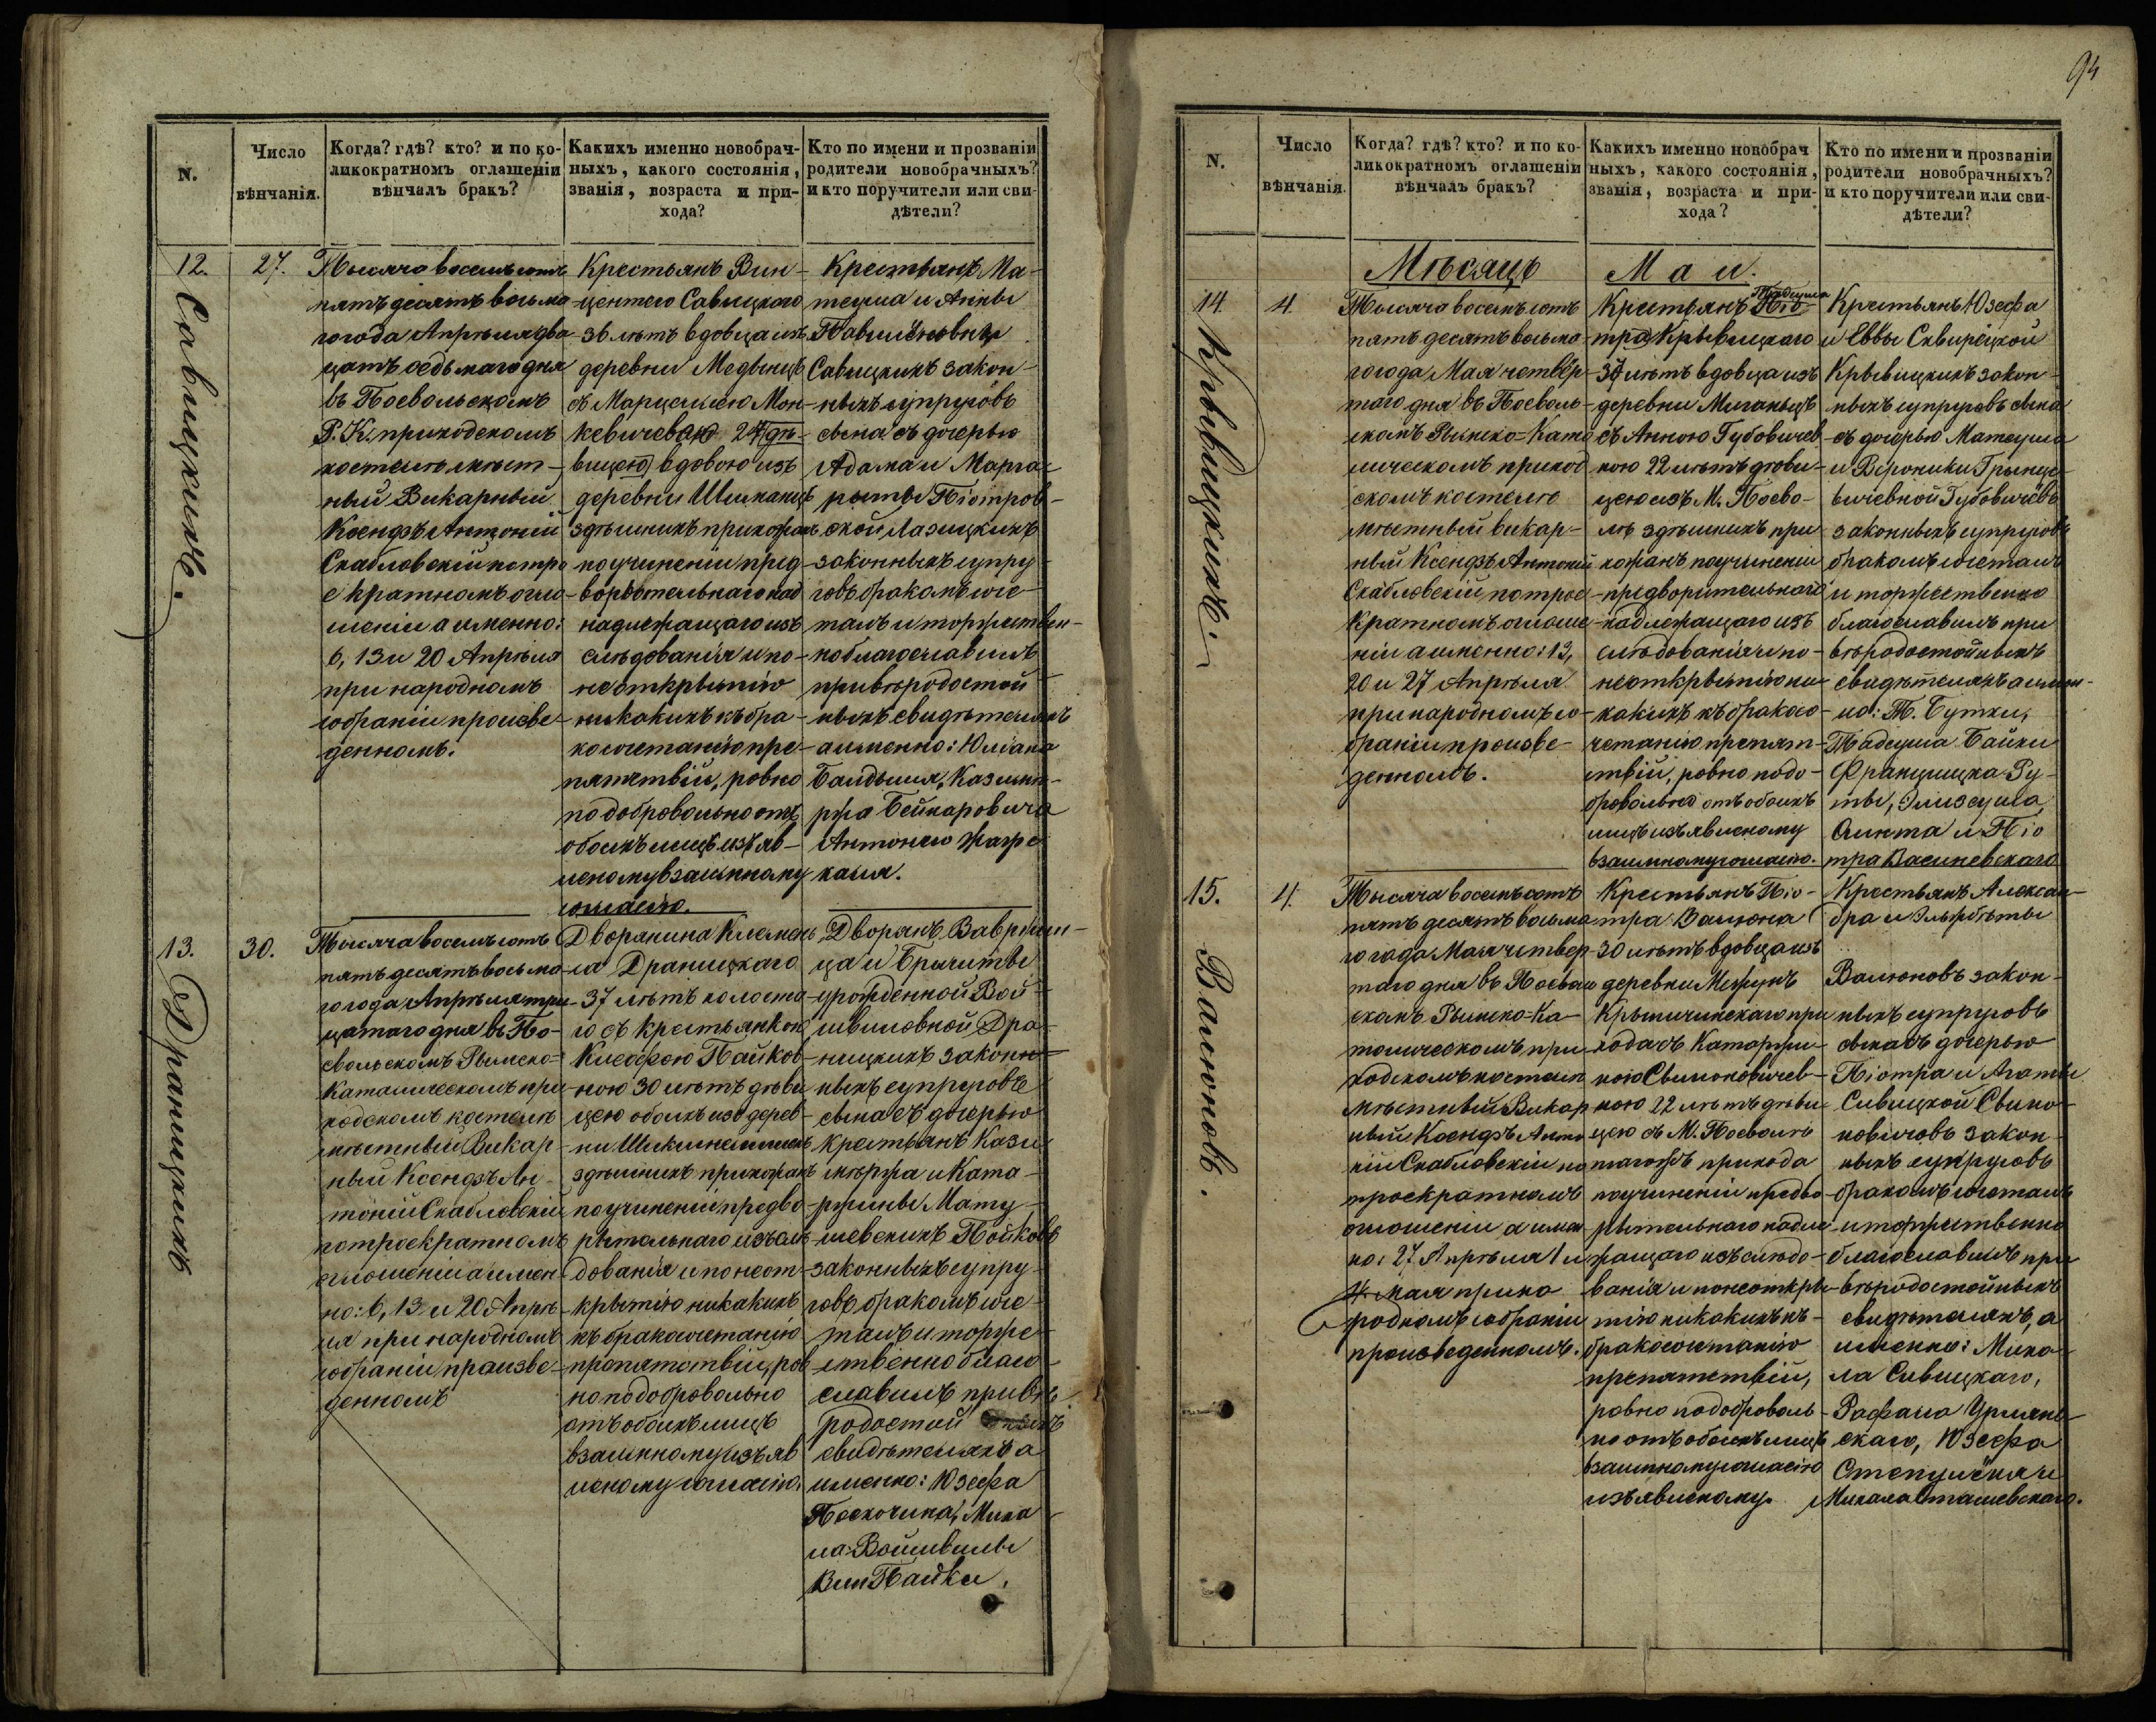 94
N.
Число
вѣнчанія.
Когда? гдѣ? кто? и по ко-
ликократномъ оглашеніи
вѣнчалъ бракъ?
Какихъ именно новобрач-
ныхъ, какого состоянія,
званія, возраста и при-
хода?
Кто по имени и прозваніи
родители новобрачныхъ?
и кто поручители или сви-
дѣтели?
12.
Савицкихъ.
27.
Тысяча восемьсотъ
пятьдесятъ восьма
го года Апрѣля два
цать седьмаго дня
въ Поевольскомъ
Р. К. приходскомъ
костелѣ мѣст-
ный Викарный
Ксендзъ Антоній
Скабловскій по тро
екратномъ огла-
шеніи а именно:
6, 13 и 20 Апрѣля
при народномъ
собраніи произве-
денномъ.
Крестьянъ Вин-
центего Савицкого
36 лѣтъ вдовца изъ
деревни Медынцъ
съ Марцелею Мон-
кевичевою 27 дѣ-
вицею вдовою изъ
деревни Шиманцъ
здѣшнихъ прихожанъ
по учиненіи пред-
ворительнаго над
надлежащаго изъ
слѣдованія и по-
неоткрытію
никакихъ къ бра-
косочетанію пре-
пятствій, ровно
по добровольно отъ
обоихъ лицъ изъяв-
леному взаимному
согласію.
Крестьянъ Ма-
теуша и Анны
Савицкихъ закон-
ныхъ супруговъ
сына съ дочерью
Адама и Марга-
риты Піотров-
ской Лазицкихъ
законныхъ супру-
говъ бракомъ соче-
талъ и торжествен-
но благославилъ
при вѣродостой-
ныхъ свидѣтеляхъ
а именно: Юліана
Балдыша, Казими-
ржа Бейнаровича
Антонего Жагре
каля.
13.
Драницкихъ
30.
Тысяча восемьсотъ
пятьдесятъ восьма-
го года Апрѣля три-
цатаго дня въ По-
евольскомъ Римско-
Католическомъ при
ходскомъ костелѣ
мѣстный Викар-
ный Ксендзъ Ан-
тоній Скабловскій
по троекратномъ
оглошеніи а имен-
но: 6, 13 и 20 Апрѣ-
ля при народномъ
собраніи произве-
денномъ
Дворянина Клемен
са Драницкаго
37 лѣтъ холоста-
го съ крестьянкою
Клеофою Пайков-
ною 30 лѣтъ дѣви
цею обоихъ изъ дерев-
ни
здѣшнихъ прихожанъ
по учиненіи предво-
рительнаго изъслѣ-
дованія и по неот-
крытію никакихъ
къ бракосочетанію
препятствій, ров
но по добровольно
отъ обоихъ лицъ
взаимному изъяв
леному согласію.
Дворянъ Вавржин-
ца и Бригитты
урожденной Вой-
швиловной Дра-
ницкихъ закон-
ныхъ супруговъ
сына съ дочерью
крестьянъ Кази
мѣржа и Ката-
ржины Мату-
шевскихъ Пойковъ
законныхъ супру-
говъ бракомъ соче-
талъ и торже-
ственно благо-
славилъ при вѣ-
родостой ныхъ
свидѣтеляхъ а
именно: Юзефа
Поскочина, Миха
ла Войшвилы
Вин Пайки.
N.
Число
вѣнчанія.
Когда? гдѣ? кто? и по ко-
ликократномъ оглашеніи
вѣнчалъ бракъ?
Какихъ именно новобрач
ныхъ, какого состоянія,
званія, возраста и при-
хода?
Кто по имени и прозваніи
родители новобрачныхъ?
и кто поручители или сви-
дѣтели?
Мѣсяцъ Маи.
14.
Крывицкихъ.
4.
Тысяча восемьсотъ
пятьдесятъ восьма-
го года Мая четвер-
таго дня въ Поеволь-
скомъ Римско-Като
лическомъ приход
скомъ костелѣ
мѣстный викар-
ный Ксендзъ Антоній
Скабловскій по трое-
кратномъ оглоше-
ніи а именно: 13,
20 и 27 Апрѣля
при народномъ со-
браніи произве-
денномъ.
Крестьянъ Тадеуша Піо-
тра Крывицкаго
30 лѣтъ вдовца изъ
деревни Миганцъ
съ Анною Губовичев-
ною 22 лѣтъ дѣви-
цею изъ М. Поево-
ля здѣшнихъ при
хожанъ по учиненіи
предворительнаго
надлежащаго изъ
слѣдованія и по-
неоткрытію ни
какихъ къ бракосо-
четанію препят-
ствій, ровно по до-
бровольно отъ обоихъ
лицъ изъявленому
взаимному согласію.
Крестьянъ Юзефа
и Еввы Сквирецкой
Крывицкихъ закон-
ныхъ супруговъ сына
съ дочерью Матеуша
и Вероники Грынце-
вичевной Губовичовъ
законныхъ супруговъ
бракомъ сочеталъ
и торжественно
благославилъ при
вѣродостойныхъ
свидѣтеляхъ а имен-
но: Т. Бутки,
Тадеуша Байки
Францишка Ру-
ты, Элизеуша
Олита и Піо
тра Василевскаго
15.
Валюновъ.
4.
Тысяча восемьсотъ
пятьдесятъ восьма
го года Мая четвер
таго дня въ Поевол
скомъ Римско-Ка-
толическомъ при-
ходскомъ костелѣ
мѣстный Викар
ный Ксендзъ Анто
ній Скабловскій по
троекратномъ
оглошеніи а имен
но: 27 Апрѣля 1 и
4 мая при на
родномъ собраніи
произведенномъ.
Крестьянъ Піо-
тра Валюна
30 лѣтъ вдовца изъ
деревни
Крыничинскаго при
хода съ Катаржи-
ною Свилоновичев-
ною 22 лѣтъ дѣви
цею съ М. Поеволя
тагожъ прихода
по учиненіи предво-
рительнаго надле
жащаго изъслѣдо-
ванія и по неоткры-
тію никакихъ къ-
бракосочетанію
препятствій,
ровно по доброволь-
но отъ обоихъ лицъ
взаимному согласію
изъявленому.
Крестьянъ Алексан-
дра и Эльжбѣты
Валюновъ закон-
ныхъ супруговъ
сына съ дочерью
Піотра и Агаты
Сивицкой Свило-
новичовъ закон-
ныхъ супруговъ
бракомъ сочеталъ
и торжественно
благославилъ при
вѣродостойныхъ
свидѣтеляхъ, а
именно: Миха-
ла Сивицкаго,
Рафала Урлянс-
скаго, Юзефа
Степулёна и
Михала Сташевскаго.